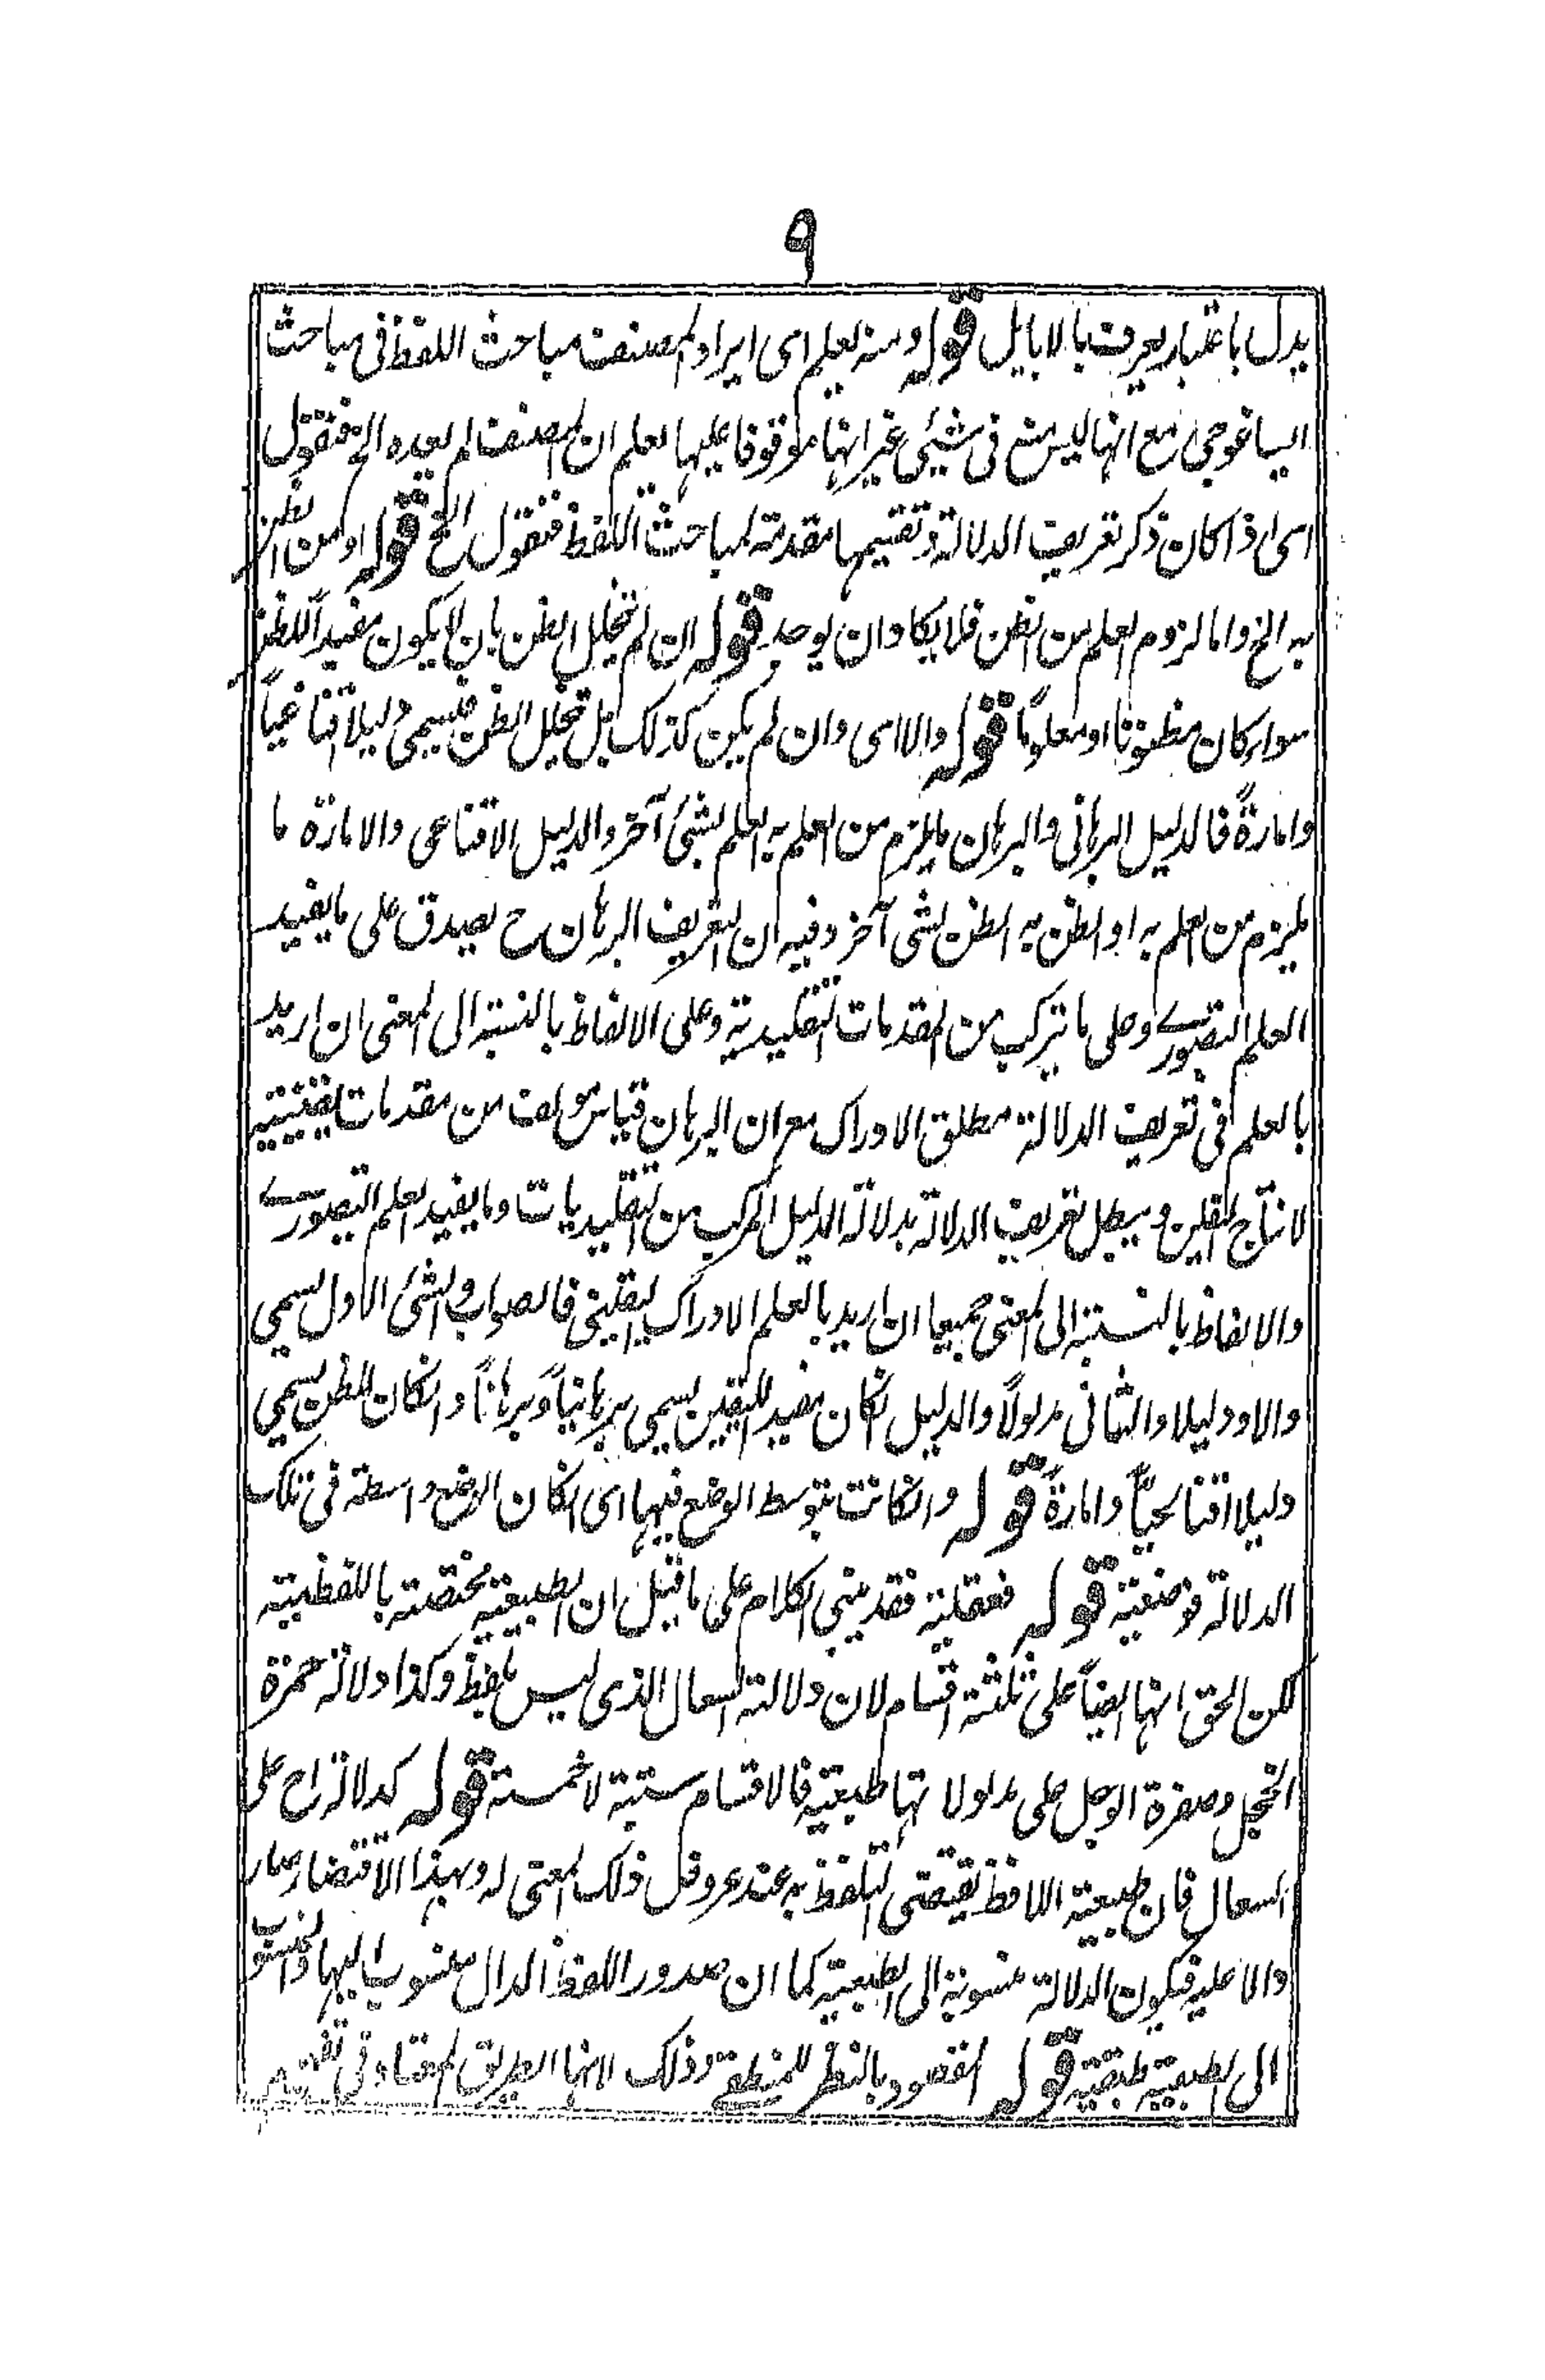 ٩
يدل باعتبار يعرف بالابايل قوله ومنه يعلم اى ايراد المصنف مباحث اللفظ فى مباحث
ايساغوجى مع انها ليس منع فى شيئى غير انها موقوفا عليها يعلم ان المصنف لم يعده الخ فنقول
اى اذا كان ذكر تعريف الدلالة وتقسيمها مقدمة لمباحث اللفظ فنقول الخ قوله او من الظن
به الخ واما لزوم العلم من الظن فلا يكاد ان يوجد قوله ان لم تخلل الظن بان لا يكون مفيداً للظن
سواء كان مظنونا او معلوماً قوله والا اى وان لم يكن كذلك بل تخلل الظن فيسمى دليلا اقناعياً
وامارةً فالدليل البرهانى والبرهان ما يلزم من العلم به العلم بشئ آخر والدليل الاقناعى والامارة ما
يلزم من العلم به او الظن به الظن بشى آخر وفيه ان تعريف البرهان ح يصدق على ما يفيد
العلم التصورے وعلى ما يتركب من المقدمات التقليدية وعلى الالفاظ بالنسبة الى المعنى ان اريد
بالعلم فى تعريف الدلالة مطلق الادراك مع ان البرهان قياس مولف من مقدمات يقينية
لانتاج اليقين ويبطل تعريف الدلالة بدلالة الدليل المركب من التقليديات وما يفيد العلم التصورے
والالفاظ بالنسبة الى المعنى جميعا ان اريد بالعلم الادراك اليقينى فالصواب والشئ الاول يسمى
والا ودليلا والثانى مدلولاً والدليل انكان مفيد لليقين يسمى برهانياً وبرهاناً وانكان للظن يسمى
دليلا اقناعياً وامارةً قوله وانكانت بتوسط الوضع فيها اى انكان الوضع واسطة فى تلك
الدلالة فوضعية قوله فعقلية فقد يبنى الكلام على ما قيل ان الطبيعية مختصة باللفظية
لكن الحق انها ايضاً على ثلثة اقسام لان دلالة السعال الذى ليس بلفظ وكذا دلالة حمرة
الخجل وصفرة الوجل على مدلولاتها طبعية فالاقسام ستة لا خمسة قوله كدلالة اح على
السعال فان طبيعة اللافظ تقتضى التلفظ به عند عروض ذلك المعنى له وبهذا الاقتضاء صار
دالا عليه فيكون الدلالة منسوبة الى الطبيعة كما ان صدور اللفظ الدال منسوب اليها والمنسوب
الى الطبيعية طبيعية قوله المقصود بالنظر للمنطقے وذلك لانها الطريق المعتاد فى تفهيم